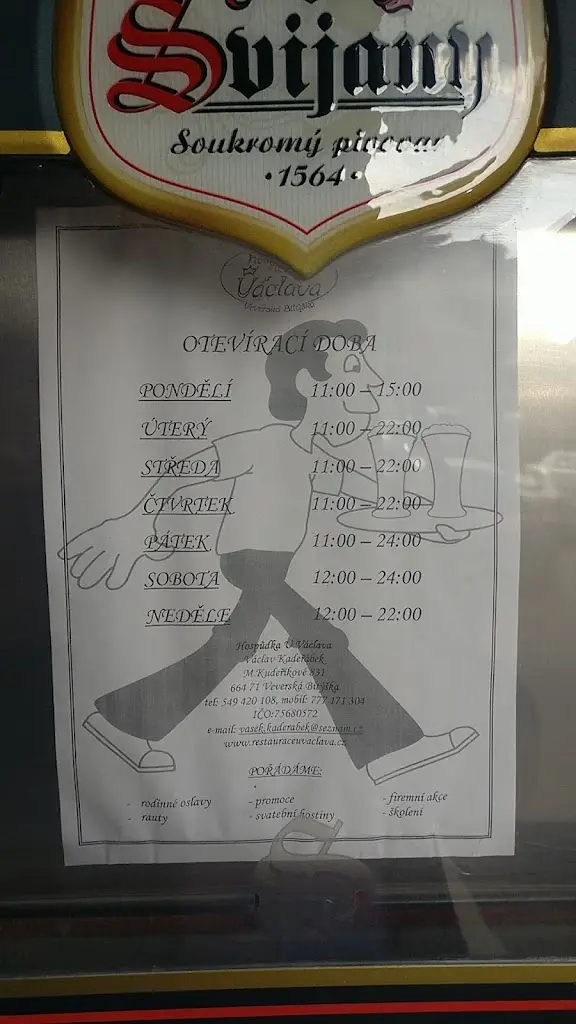 Svijany
Soukromý pivovar
·1564·
Václava
Veverská Bítýška
OTEVÍRACÍ DOBA
PONDĚLÍ 11:00 – 15:00
ÚTERÝ 11:00 – 22:00
STŘEDA 11:00 – 22:00
ČTVRTEK 11:00 – 22:00
PÁTEK 11:00 – 24:00
SOBOTA 12:00 – 24:00
NEDĚLE 12:00 – 22:00
Hospůdka U Václava
Václav Kadeřábek
M.Kudeříkové 831
664 71 Veverská Bítýška
tel: 549 420 108, mobil: 777 171 304
IČO:75680572
e-mail: vasek.kaderabek@seznam.cz
www.restauraceuvaclava.cz
POŘÁDÁME:
- rodinné oslavy - promoce - firemní akce
- rauty - svatební hostiny - školení